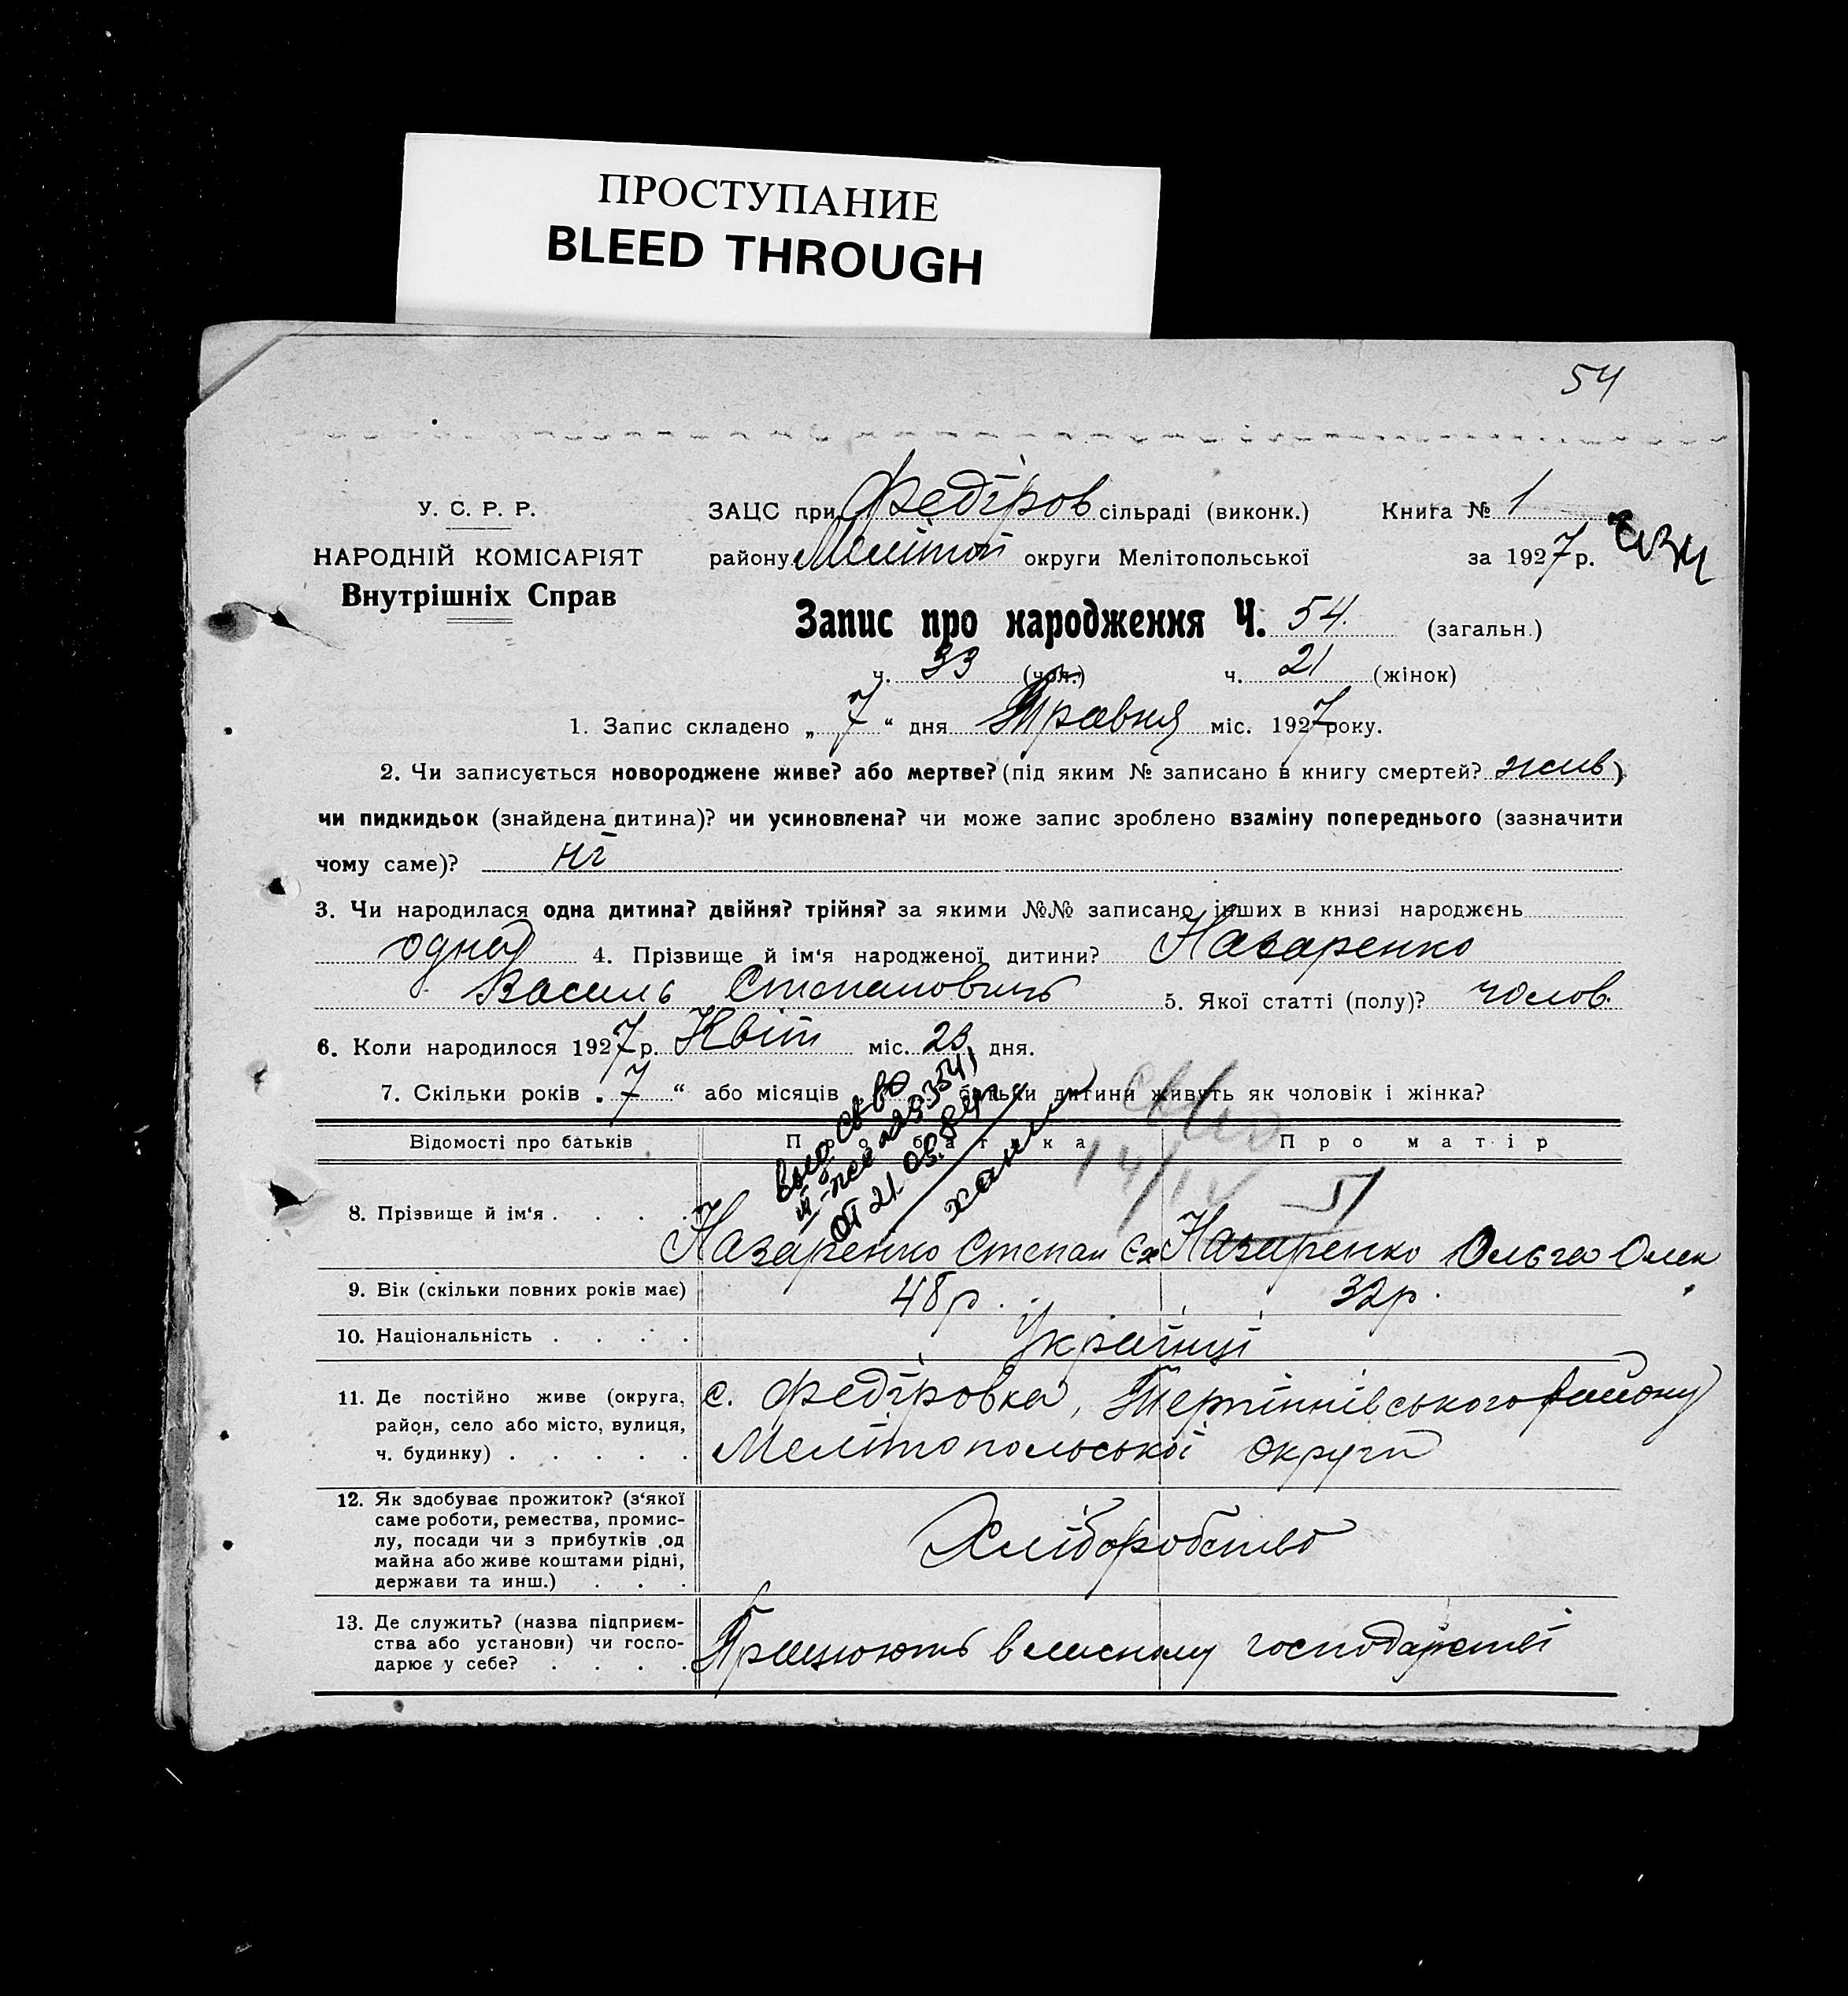 ПРОСТУПАНИЕ
BLEED THROUGH
54
У. С. Р. Р.
НАРОДНІЙ КОМІСАРІЯТ
Внутрішніх Справ
ЗАЦС при Федіров сільраді (виконк.) Книга № 1
району Меліто округи Мелітопольської за 1927 р.
Запис про народження Ч. 54. (загальн.)
ч. 33 (чол.) ч. 21 (жінок)
1. Запис складено „ 7 “ дня Травня міс. 1927 року.
2. Чи записується новороджене живе? або мертве? (під яким № записано в книгу смертей? жив)
чи пидкидьок (знайдена дитина)? чи усиновлена? чи може запис зроблено взаміну попереднього (зазначити
чому саме)? ні
3. Чи народилася одна дитина? двійня? трійня? за якими №№ записано інших в книзі народжень
одна 4. Прізвище й ім‘я народженої дитини? Назаренко
Василь Степанович 5. Якої статті (полу)? чолов.
6. Коли народилося 1927 р. Квіт міс. 23 дня.
7. Скільки років „ 7 “ або місяців батьки дитини живуть як чоловік і жінка?
Відомості про батьків Про батька Про матір
от 21.03.84г
14/IV 51
8. Прізвище й ім‘я . . . . Назаренко Степан Єх Назаренко Ольга Олек
9. Вік (скільки повних років має) 48 р. 32 р.
10. Національність . . . . Українці
11. Де постійно живе (округа, район, село або місто, вулиця, ч. будинку) . . . . .
с. Федіровка, Терпіннівського району
Мелітопольської округи
12. Як здобуває прожиток? (з‘якої
саме роботи, ремества, промис-
лу, посади чи з прибутків од
майна або живе коштами рідні,
держави та инш.) . . .
Хліборобство
13. Де служить? (назва підприєм-
ства або установи) чи госпо-
дарює у себе? . . . .
Працюють в власному господарстві